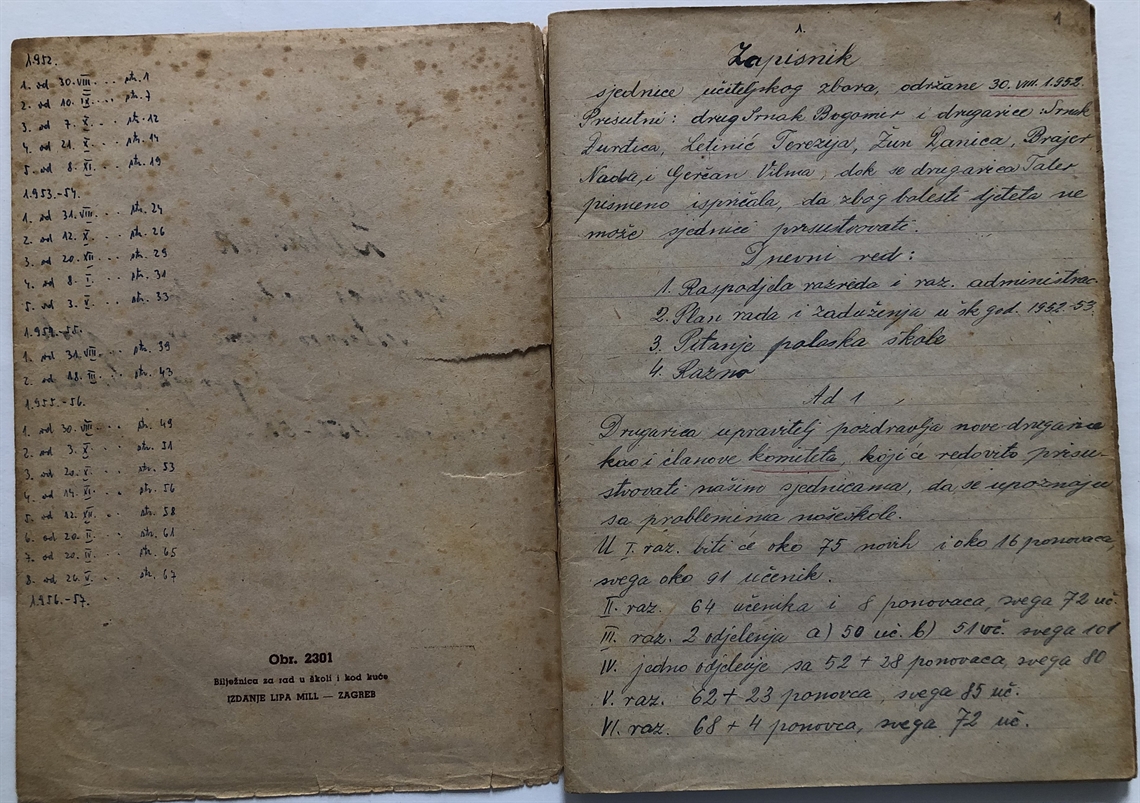 1952.
1. od 30. VIII. . . str. 1
2. od 10. IX. . . str. 7
3. od 7. X. . . str. 12
4. od 21. X. . . str. 14
5. od 8. XI. . . str. 19
1953.-54.
1. od 31. VIII. . . str. 24
2. od 12. X. . . str. 26
3. od 20. XII. . . str. 29
4. od 8. I. . . str. 31
5. od 3. V. . . str. 33
1954.-55.
1. od 31. VIII. . . str. 39
2. od 18. III. . . str. 43
1955.-56.
1. od 30. VIII. . . str. 49
2. od 3. X. . . str. 51
3. od 20. X. . . str. 53
4. od 14. XI. . . str. 56
5. od 12. XII. . . str. 58
6. od 20. II. . . str. 61
7. od 20. IV. . . str. 65
8. od 26. V. . . str. 67
1956.-57.
Obr. 2301
Bilježnica za rad u školi i kod kuće
IZDANJE LIPA MILL — ZAGREB
1.
1
Zapisnik
sjednice učiteljskog zbora, održane 30. VIII. 1952.
Prisutni: drug Srnak Bogomir i drugarice: Srnak
Đurđica, Letinić Terezija, Žun Danica, Brajer
Nada, i Gerčan Vilma, dok se drugarica Taler
pismeno ispričala, da zbog bolesti djeteta ne
može sjednici prisustvovati.
Dnevni red:
1. Raspodjela razreda i raz. administrac.
2. Plan rada i zaduženja u šk. god. 1952-53.
3. Pitanje polaska škole
4. Razno
Ad 1
Drugarica upravitelj pozdravlja nove drugarice
kao i članove komiteta, koji će redovito prisu-
stvovati našim sjednicama, da se upoznaju
sa problemima naše škole.
U I. raz. biti će oko 75 novih i oko 16 ponovaca,
svega oko 91 učenik.
II. raz. 64 učenika i 8 ponovaca, svega 72 uč.
III. raz. 2 odjelenja a) 50 uč. b) 51 uč. svega 101
IV. jedno odjelenje sa 52 + 28 ponovaca, svega 80
V. raz. 62 + 23 ponovca, svega 85 uč.
VI. raz. 68 + 4 ponovca, svega 72 uč.